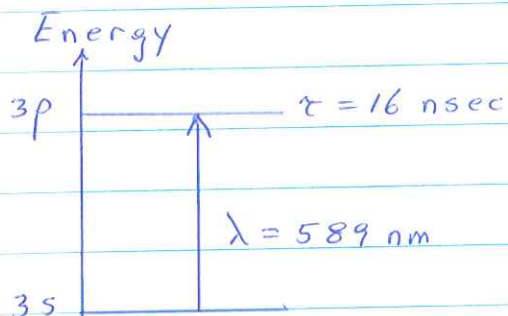 Energy
3p
τ = 16 nsec
λ = 589 nm
3s